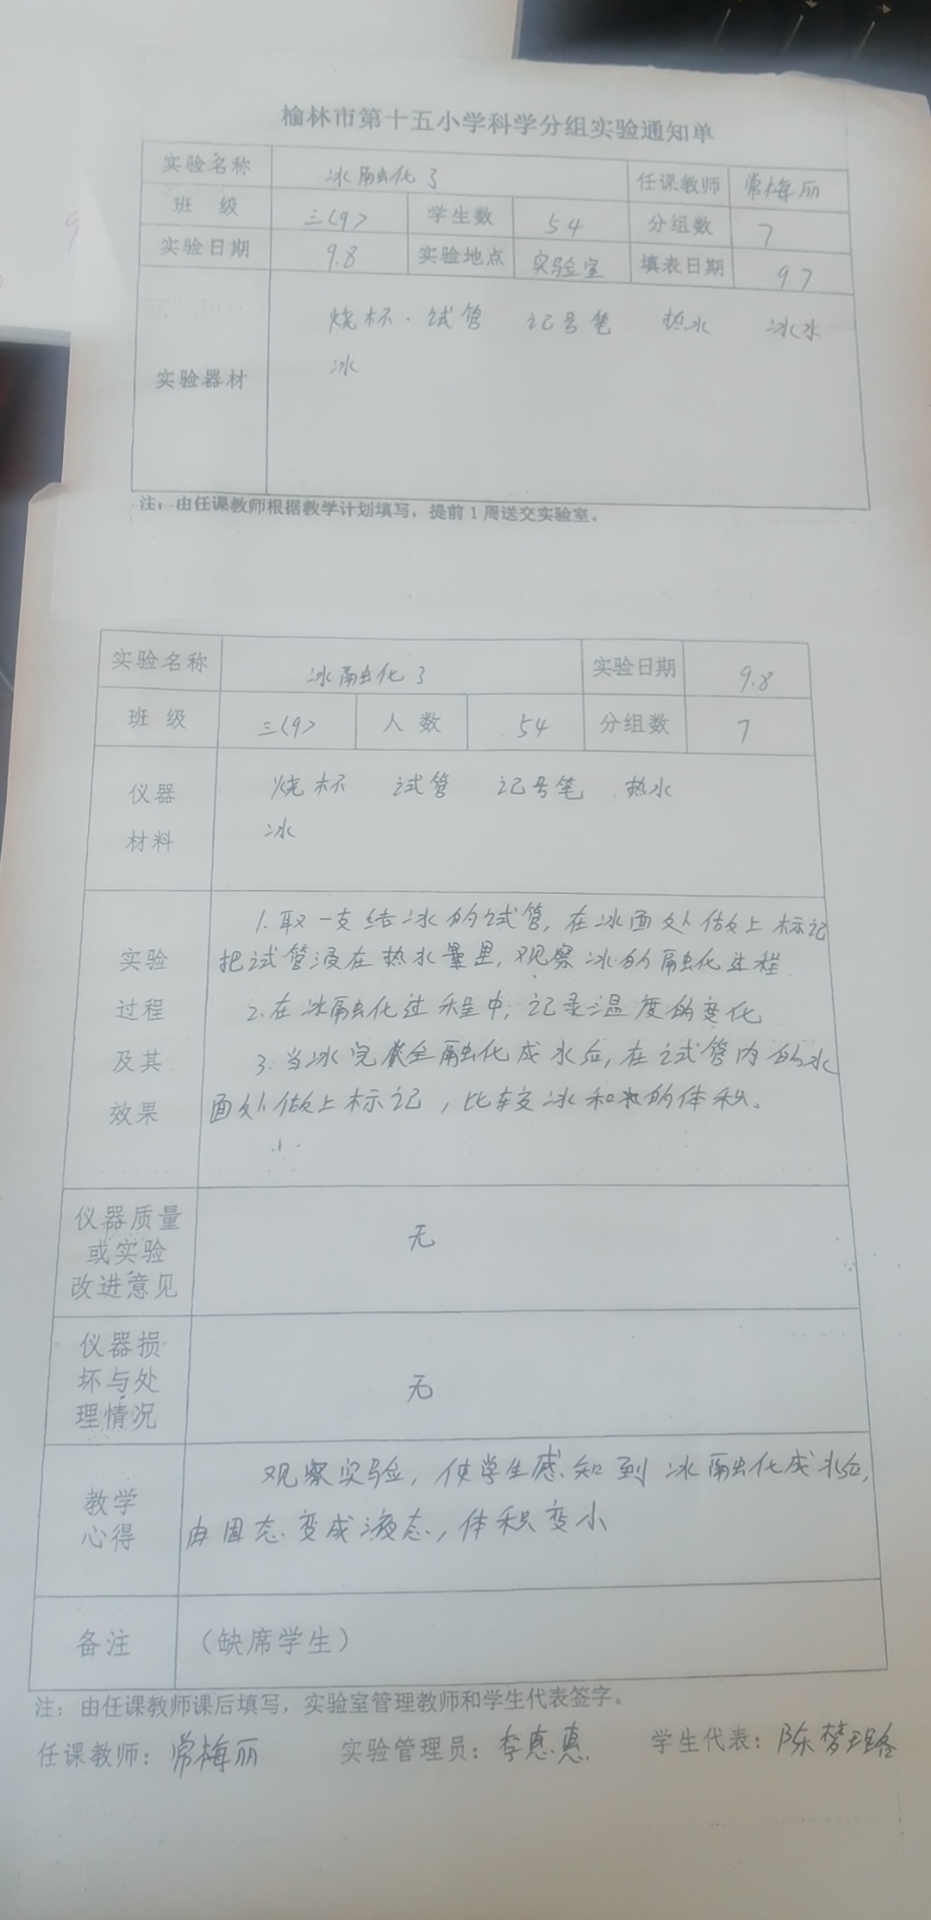 榆林市第十五小学科学分组实验通知单
实验名称 冰融化了 任课教师 常梅丽
班 级 三(9) 学生数 54 分组数 7
实验日期 9.8 实验地点 实验室 填表日期 9.7
实验器材 烧杯. 试管 记号笔 热水 冰水
冰
注：由任课教师根据教学计划填写，提前1周送交实验室。
实验名称 冰融化了 实验日期 9.8
班 级 三(9) 人 数 54 分组数 7
仪器材料 烧杯 试管 记号笔 热水
冰
实验过程及其效果 1. 取一支结冰的试管，在冰面处做上标记
把试管浸在热水里，观察冰的融化过程
2. 在冰融化过程中，记录温度的变化
3. 当冰完全融化成水后，在试管内的水
面处做上标记，比较冰和水的体积。
仪器质量或实验改进意见 无
仪器损坏与处理情况 无
教学心得 观察实验，使学生感知到冰融化成水后，
由固态变成液态，体积变小
备注 （缺席学生）
注：由任课教师课后填写，实验室管理教师和学生代表签字。
任课教师：常梅丽 实验管理员：李惠惠 学生代表：陈梦璐